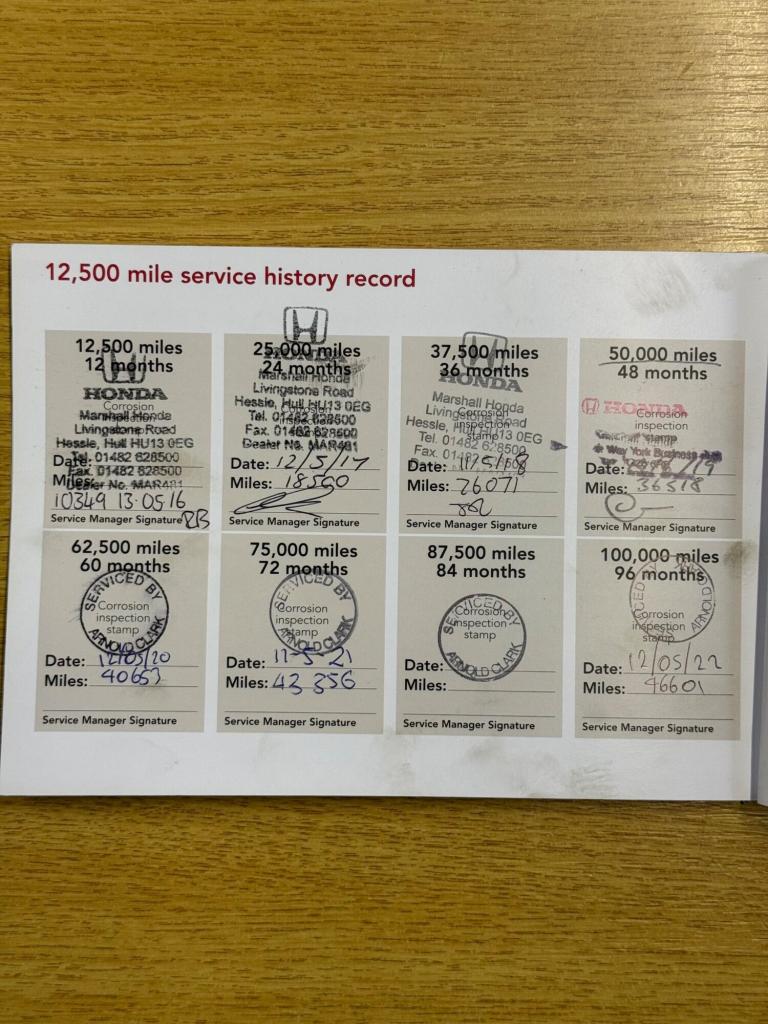 12,500 mile service history record
12,500 miles
12 months
HONDA
Corrosion
Marshall Honda
Livingstone Road
Hessle, Hull HU13 0EG
Tel. 01482 628500
Fax. 01482 628500
Dealer No. MAR481
Date:
Miles:
10349 13.05.16
Service Manager Signature RB
25,000 miles
24 months
HONDA
Marshall Honda
Livingstone Road
Hessle, Hull HU13 0EG
Tel. 01482 628500
Fax. 01482 628500
Dealer No. MAR481
Date: 12/5/17
Miles: 18560
Service Manager Signature
37,500 miles
36 months
HONDA
Marshall Honda
Livingstone Road
Corrosion
inspection
stamp
Hessle, Hull HU13 0EG
Tel. 01482 628500
Fax. 01482
Date: 11/5/18
Miles: 26071
Service Manager Signature
50,000 miles
48 months
HONDA
Corrosion
inspection
stamp
Way York Business
Date: /19
Miles: 36518
Service Manager Signature
62,500 miles
60 months
SERVICED BY
ARNOLD CLARK
Corrosion
inspection
stamp
Date: 12/05/20
Miles: 40653
Service Manager Signature
75,000 miles
72 months
SERVICED BY
ARNOLD CLARK
Corrosion
inspection
stamp
Date: 11-5-21
Miles: 43 356
Service Manager Signature
87,500 miles
84 months
SERVICED BY
ARNOLD CLARK
Corrosion
inspection
stamp
Date:
Miles:
Service Manager Signature
100,000 miles
96 months
ARNOLD
Corrosion
inspection
stamp
Date: 12/05/22
Miles: 46601
Service Manager Signature